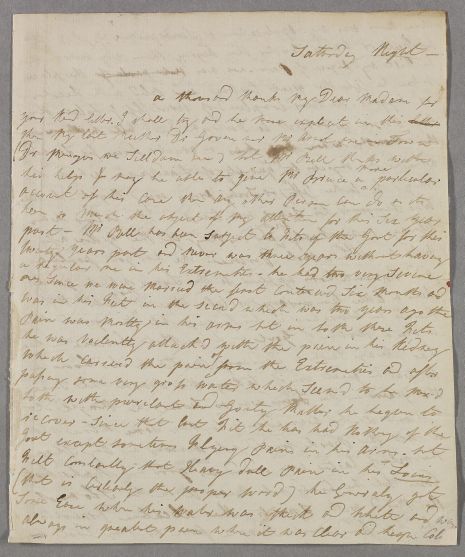 Saturday Night –
a thousand thanks my Dear Madam for
your kind letter. I shall try and be more explicit in this
than my last neither Dr Gower nor Mr are in Town
(Dr we Seldom see) but Mr Bell thinks with
his help I may be able to give Mr a more particular
account of his Case than any other Person can do as he
has been so much the object of my attention for this Six years
past – Mr Bell has been Subject to fits of the Gout for this
twenty years past and never was three years without having
a regular one in his Extremities. he had two very Severe
ones Since we were married the first Continued Six Months and
was in his feet in the second which was two years ago the
Pain was mostly in his arms but in both these fits
he was violently attack'd with the pain in his Kidney
which carried the pain from the Extremities and after
passing some very gross water, which Seem'd to be mix'd
both with purulent and Gouty Matter he began to
recover – Since that last fit he has had Nothing of the
Gout except sometimes flying Pain in his arms. but
felt Constantly that Heavy dull Pain in his Loins
(that is Certainly the proper word) he Generally got
Some Ease when his water was thick and white and was
always in greatest pain when it was Clear and